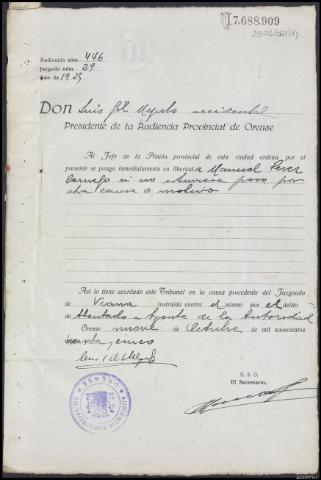 7.688.909
Audiencia núm. 446
Juzgado núm. 29
Año de 1935
DON Luis Gil accidental
Presidente de la Audiencia Provincial de Orense
Al Jefe de la Prisión provincial de esta ciudad ordena por el
presente se ponga inmediatamente en libertad a Manuel Perez
si no estuviera preso por
otra causa o motivo
Así lo tiene acordado este Tribunal en la causa procedente del Juzgado
de Viana instruida contra el mismo por el delito
de Atentado a Agente de la Autoridad
Orense nueve de Octubre de mil novecientos
treinta y cinco
S. S. O.
El Secretario,
AUDIENCIA PROVINCIAL DE ORENSE